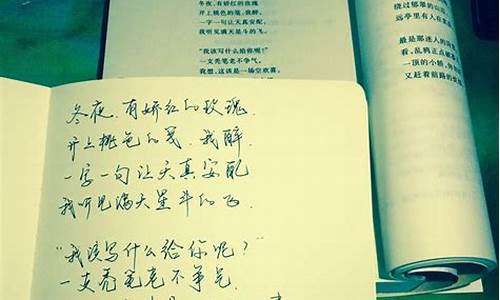 冬夜,有娇红的玫瑰
开上桃色的笺,我醉,
一字一句让天真安配,
我听见满天星斗的飞。
"我该写什么给你呢?"
一支秃笔老不争气。
我想,这该是一场空欢喜。
绕过郁翠的山
远亭里有人在
最是那迷人的
看,乱鸦正点破
一顶的小轿,
又赶着前路的
冬夜,有娇红的玫瑰
开上桃色的笺,我醉,
一字一句让天真安配
我听见满天星斗的飞.
"我该写什么给你呢?"
一支秃笔老不争气.